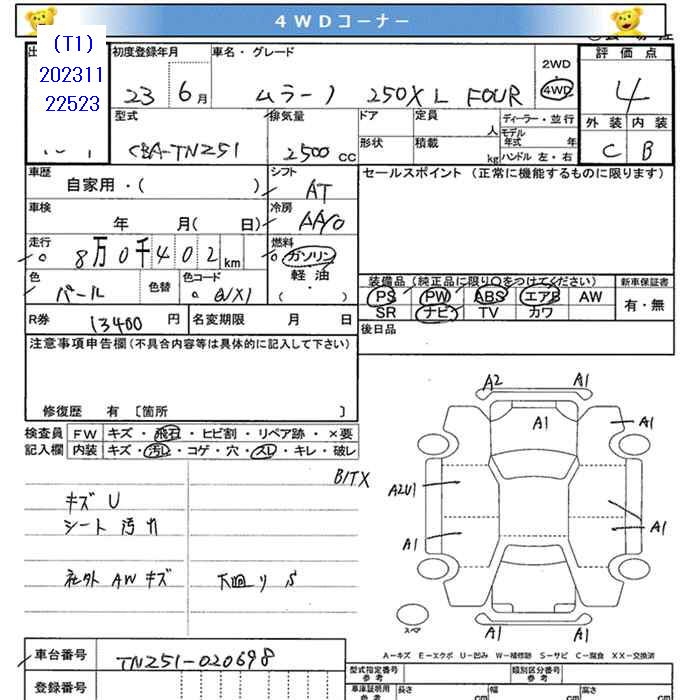 4WDコーナー
(T1)
202311
22523
初度登録年月
車名・グレード
2WD
4WD
評価点
23
6月
ムラーノ 250XL FOUR
4
型式
排気量
ドア
定員
人
ディーラー・並行
モデル
年式 年
外装
内装
CBA-TNZ51
2500cc
形状
積載
kg
ハンドル 左・右
C
B
車歴
自家用・( )
シフト
AT
セールスポイント (正常に機能するものに限ります)
車検
年 月( 日)
冷房
AA/C
走行
8万0千402km
燃料
ガソリン
軽油
( ・ )
色
パール
色替
色コード
QX1
装備品 (純正品に限り○をつけてください)
新車保証書
PS PW ABS エアB AW
SR ナビ TV カワ
有・無
R券
13400円
名変期限 月 日
後日品
注意事項申告欄(不具合内容等は具体的に記入して下さい)
修復歴 有 [箇所 ]
検査員
記入欄
FW
キズ・飛石・ヒビ割・リペア跡・×要
内装
キズ・汚レ・コゲ・穴・スレ・キレ・破レ
B/TX
キズ U
シート 汚れ
社外 AW キズ
下廻り S
A2
A1
A1
A1
A2U1
A1
A1
A1
A1
スペア
A-キズ E-エクボ U-凹み W-補修跡 S-サビ C-腐食 XX-交換済
車台番号
TNZ51-020698
登録番号
型式指定番号
参考
類別区分番号
参考
車庫証明用
参考
長さ
cm
幅
cm
高さ
cm